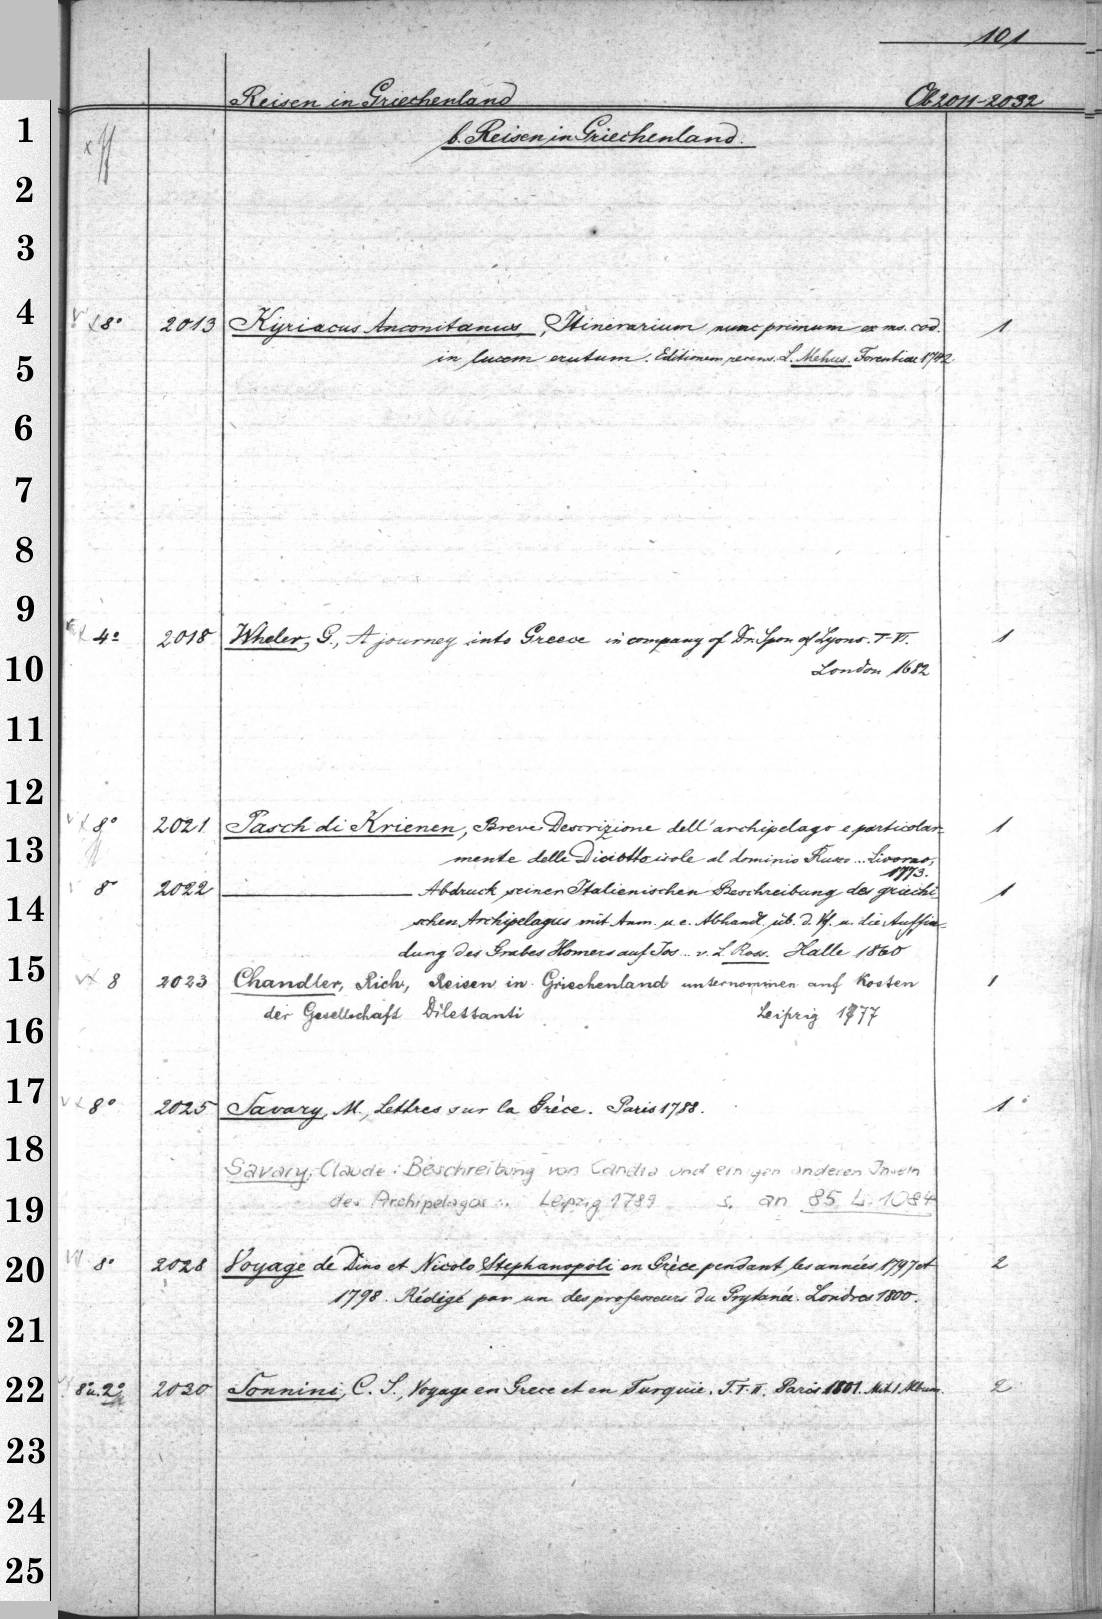 101
Reisen in Griechenland Ob 2011-2032
1
b. Reisen in Griechenland.
2
3
4
8° 2013 Kyriacus Anconitanus, Itinerarium nunc primum ex ms. cod. 1
in lucem erutum. Editionem recens. L. Mehus. Florentiae 1742.
5
6
7
8
9
4° 2018 Wheler, G., A journey into Greece in company of Dr. Spon of Lyons. T-VI. 1
10
London 1682
11
12
8° 2021 Pasch di Krienen, Breve Descrizione dell'archipelago e particolar- 1
13
mente delle Diciotto isole al dominio Russo ... Livorno,
1773.
8° 2022 Abdruck seiner Italienischen Beschreibung des griechi- 1
14
schen Archipelagus mit Anm. u. e. Abhandl. üb. d. Vf. u. die Auffin-
dung des Grabes Homers auf Jos ... v. L. Ross. Halle 1860
15
8 2023 Chandler, Rich., Reisen in Griechenland unternommen auf Kosten 1
der Gesellschaft Dilettanti Leipzig 1777
16
17
8° 2025 Savary, M., Lettres sur la Grèce. Paris 1788. 1
18
Savary, Claude: Beschreibung von Candia und einigen anderen Inseln
des Archipelagos ... Leipzig 1789 s. an 85 L. 1084
19
20
8° 2028 Voyage de Dino et Nicolo Stephanopoli en Grèce pendant les années 1797 et 2
1798. Rédigé par un des professeurs du Prytanée. Londres 1800.
21
22
8° u. 2° 2030 Sonnini, C. S., Voyage en Grece et en Turquie. T. I-II. Paris 1801. Mit 1 Album. 2
23
24
25